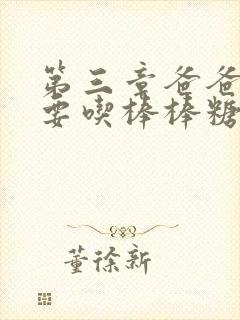 第三章爸爸
要喫棒棒糖
董徐新